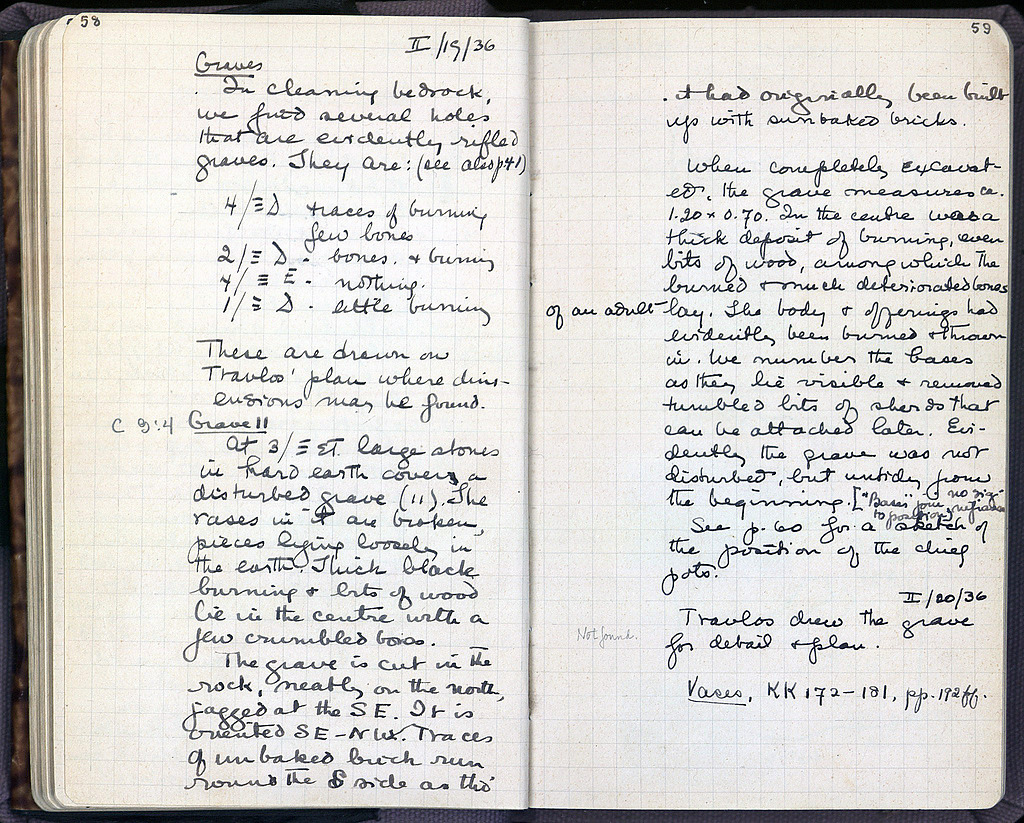 58
II/19/36
Graves
. In cleaning bedrock,
we find several holes
that are evidently rifled
graves. They are: (see also p41)
4/Ξ D traces of burning
few bones
2/Ξ D - bones. + burning
4/Ξ E - nothing.
1/Ξ D - little burning
These are drawn on
Travlos' plan where dim-
ensions may be found.
C 9:4 Grave 11
At 3/Ξ ΣΤ large stones
in hard earth cover a
disturbed grave (11). The
vases in it are broken,
pieces lying loosely in
the earth. Thick black
burning + bits of wood
lie in the centre with a
few crumbled bones.
The grave is cut in the
rock, neatly on the north,
jagged at the SE. It is
oriented SE-NW. Traces
of unbaked brick run
round the S side as tho'
59
. it had originally been built
up with sunbaked bricks.
When completely excavat-
ed, the grave measures ca.
1.20 x 0.70. In the centre was a
thick deposit of burning, even
bits of wood, among which the
burned + much deteriorated bones
of an adult lay. The body + offerings had
evidently been burned + thrown
in. We number the bases
as they lie visible + removed
tumbled bits of sherds that
can be attached later. Evi-
dently the grave was not
disturbed, but untidy from
the beginning. ["Bases" join no sig-
to position]
See p. 60 for a sketch of
the position of the chief
pots.
II/20/36
Travlos drew the grave
for detail + plan.
Not found.
Vases, KK 172-181, pp. 192ff.